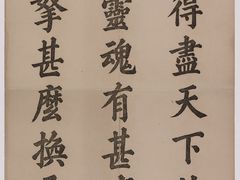 得盡天下
靈魂有甚
拏甚麼換